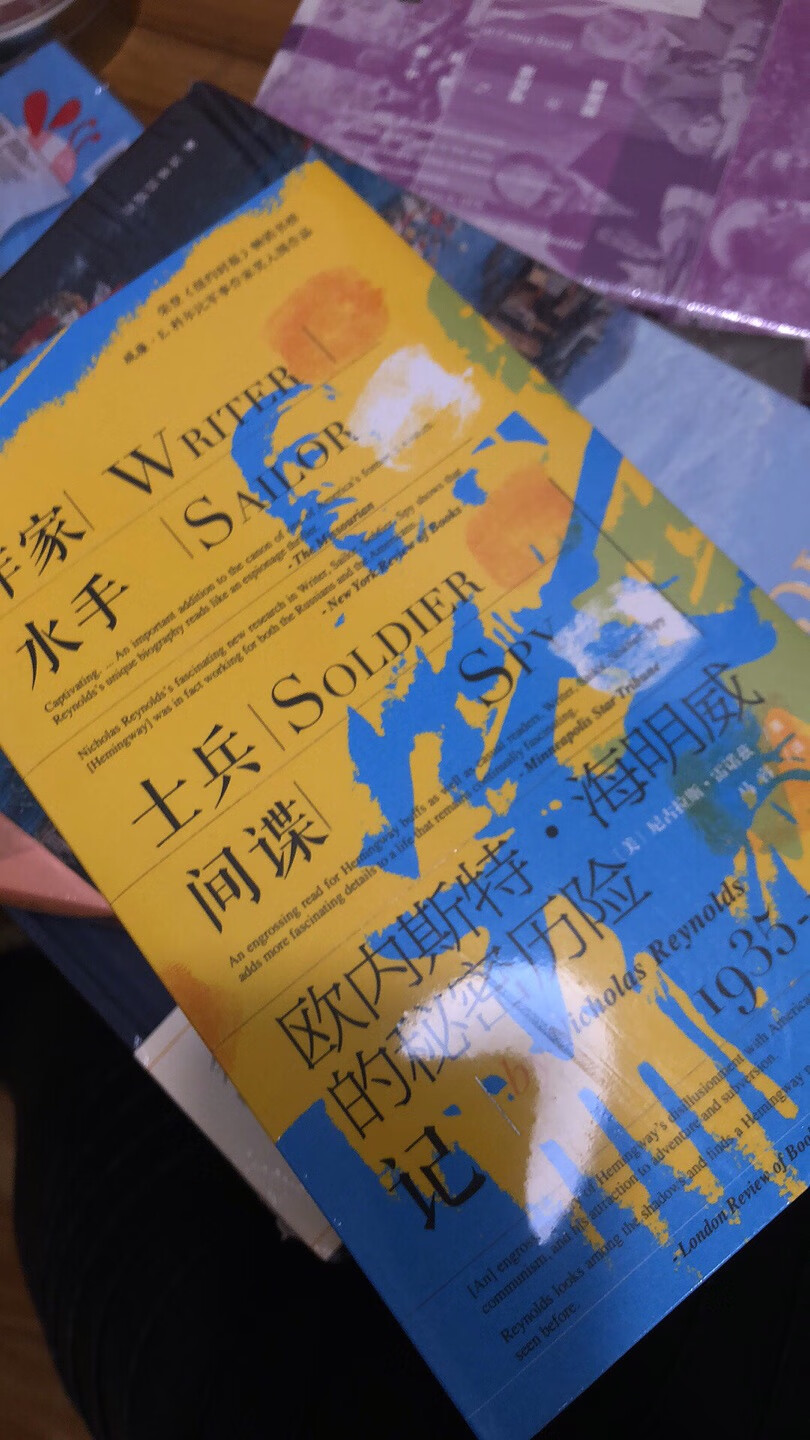 荣登《纽约时报》畅销书榜
威廉·E.科尔比军事作家奖入围作品
作家| WRITER |
水手 |SAILOR
Captivating. ... An important addition to the canon of America's
Reynolds's unique biography reads like an espionage
-The Missourian
Nicholas Reynolds's fascinating new research in Writer, Sailor, Soldier, Spy shows the
[Hemingway] was in fact working for both the Russians and the Americans.
-New York Review of Books
士兵|SOLDIER
间谍| SPY
An engrossing read for Hemingway buffs as well as casual readers. Writer, Sailor, Soldier, Spy
adds more fascinating details to a life that remains continually fascinating.
- Minneapolis Star Tribune
欧内斯特·海明威
的秘密历险
记
[美] 尼古拉斯·雷诺兹
by Nicholas Reynolds
1935-
[An] engrossing of Hemingway's disillusionment with
communism, and his attraction to adventure and subversion.
Reynolds looks among the shadows and finds a Hemingway
seen before.
-London Review of Books